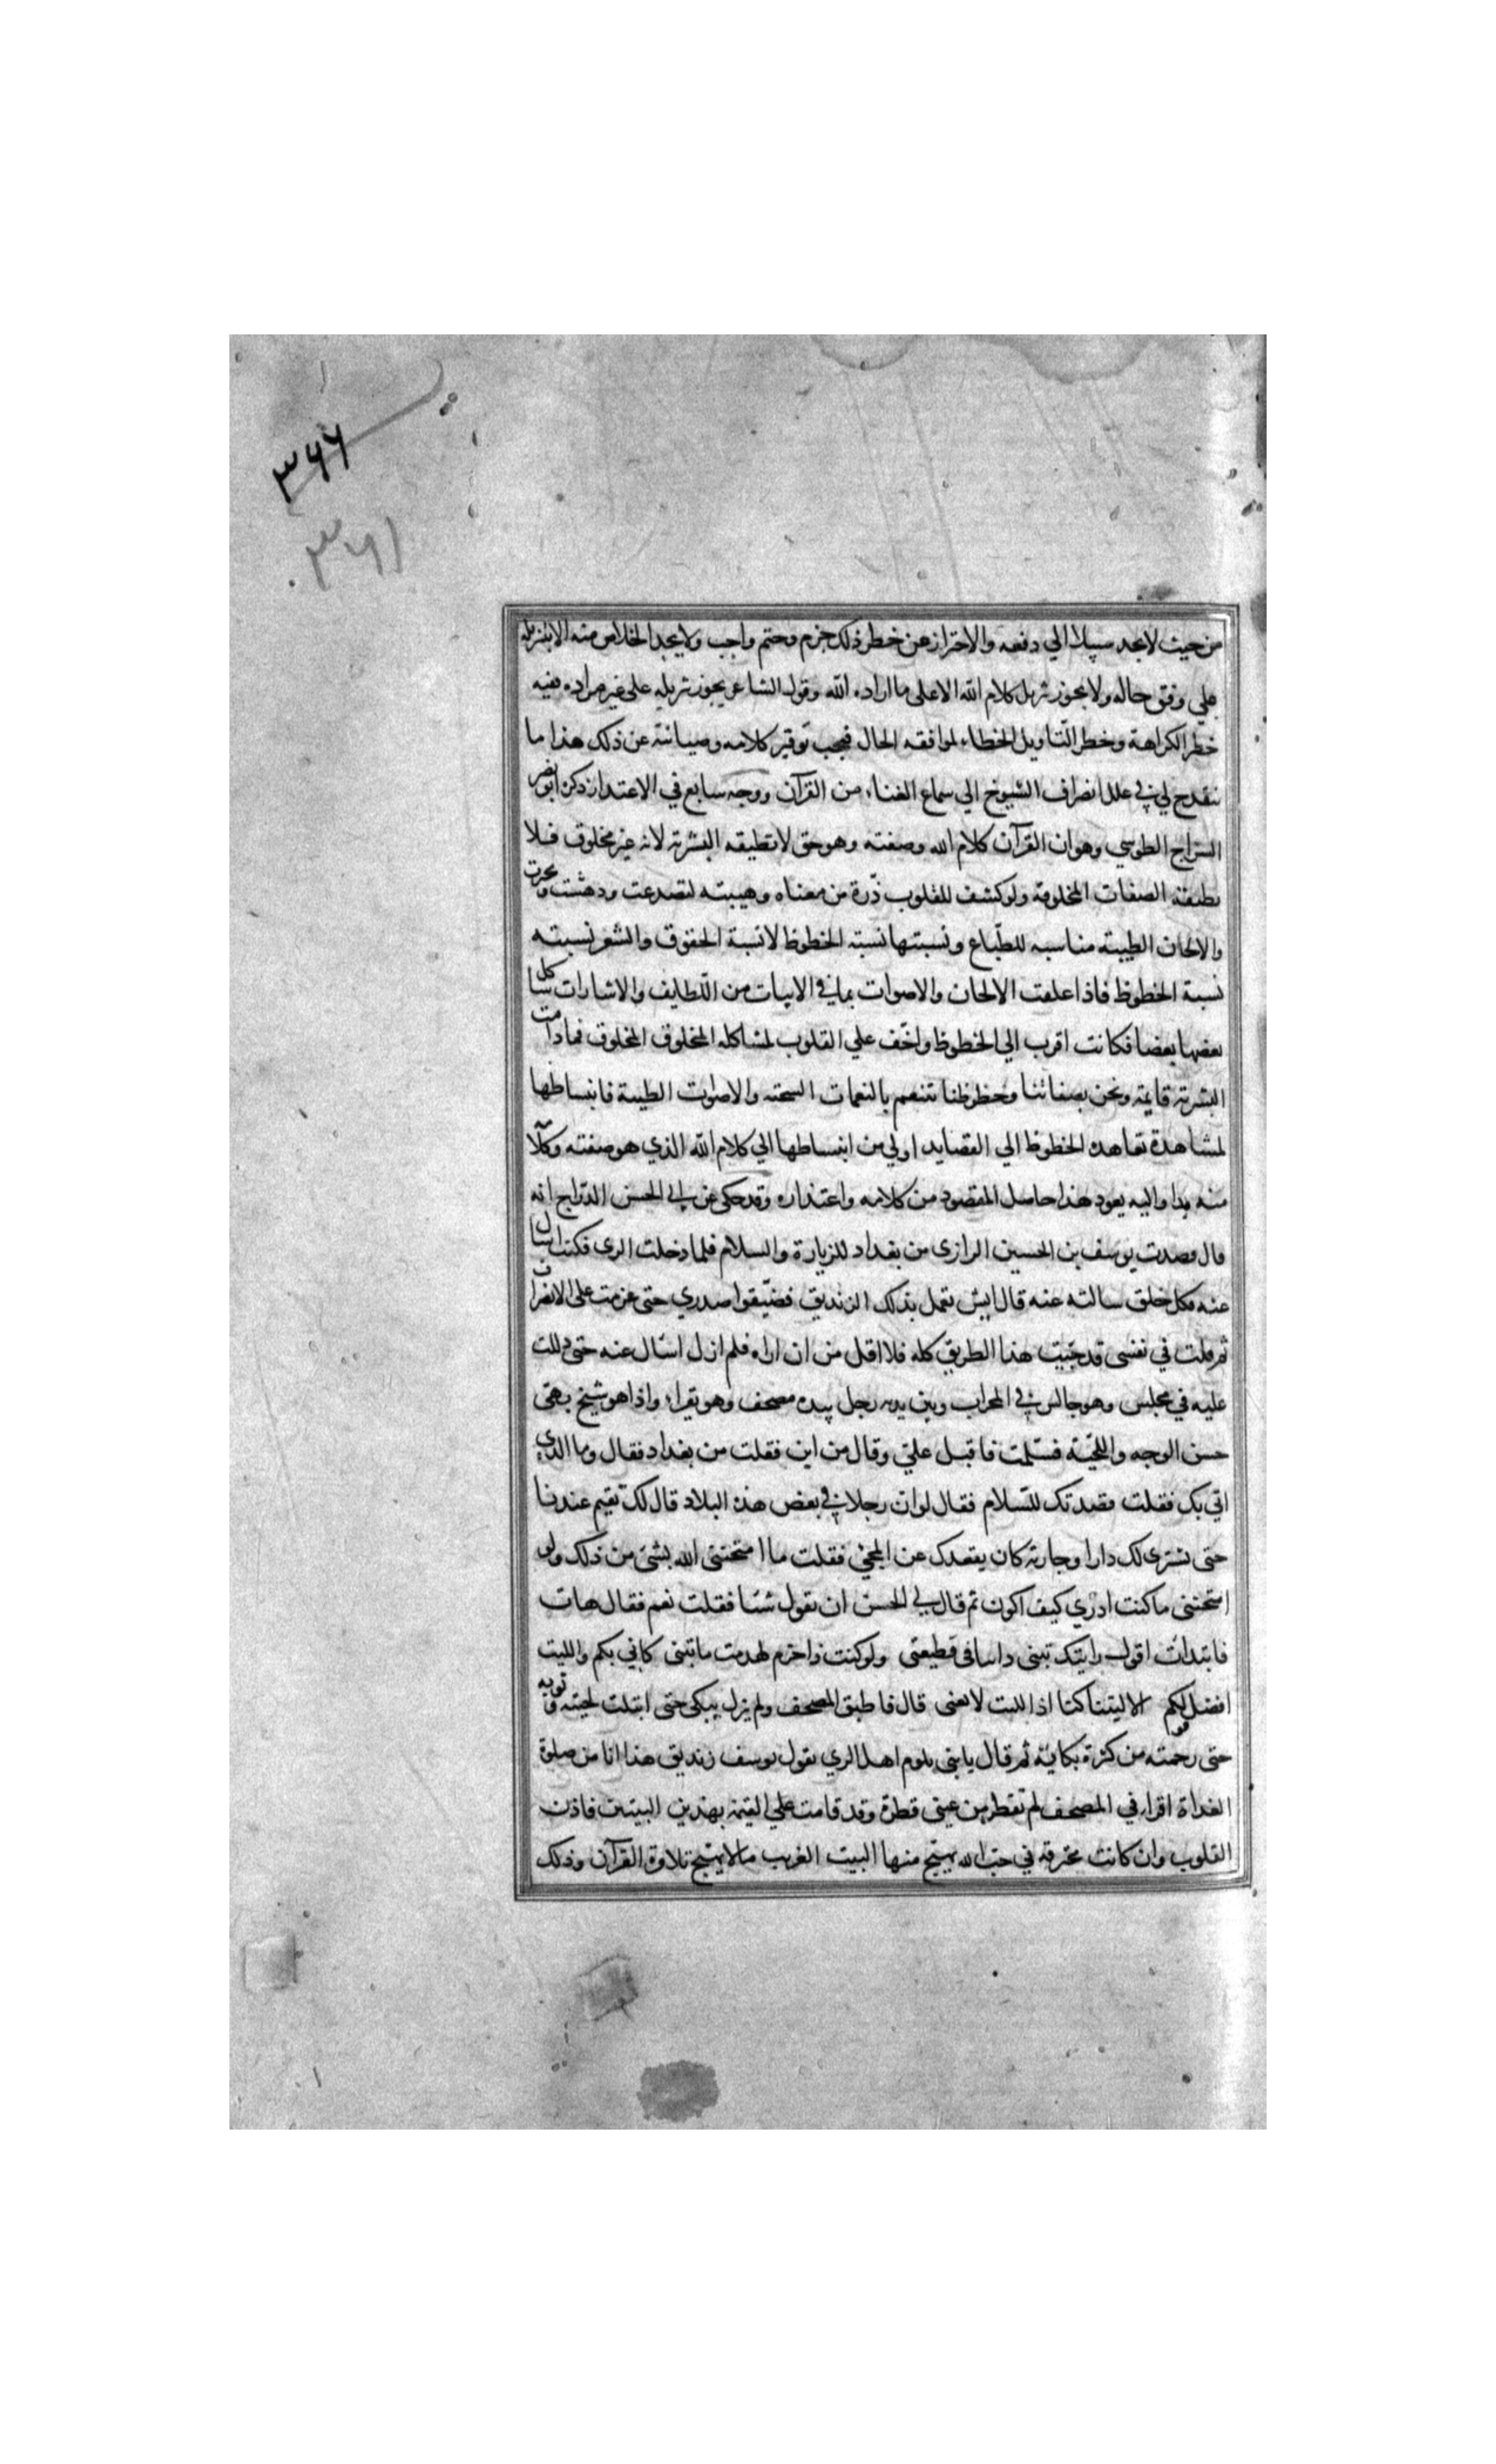 ٣٦٦
٣٦١
من حيث لا يجد سبيلا الي دفعه والاحتراز عن خطر ذلك جزم وحتم واجب ولا يجد الخلاص منه الا بتنزيله
علي وفق حاله ولا يجوز تنزيل كلام الله الا على ما اراده الله وقول الشاعر يجوز تنزيله على غير مراده ففيه
خطر الكراهة وخطر التاويل الخطاء لموافقه الحال فيجب توقير كلامه وصيانته عن ذلك هذا ما
ينقدح لي في علل انصراف الشيوخ الي سماع الغناء من القرآن ووجه سابع في الاعتدار ذكره ابو نصر
السراج الطوسي وهو ان القرآن كلام الله وصفته وهو حق لا تطيقه البشرية لانه غير مخلوق فلا
تطيقه الصفات المخلوقة ولو كشف للقلوب ذّرة من معناه وهيبته لتصدعت ودهشت وتحيرت
والالحان الطيبة مناسبه للطّباع ونسبتها نسبته الحظوظ لا نسبة الحقوق والشعر نسبته
نسبة الحظوظ فاذا علقت الالحان والاصوات بما في الابيات من اللّطايف والاشارات شاكل
بعضها بعضا فكانت اقرب الي الحظوظ واخّف علي القلوب لمشاكله المخلوق المخلوق فما دامت
البشرية قايمة ونحن بصفاتنا وحظوظنا نتنعم بالنغمات السحته والاصوات الطيبة فانبساطها
لمشاهدة تقاهده الحظوظ الي القصايد اولي من انبساطها الي كلام الله الذي هو صفته وكلاّ
منه بدا واليه يعود هذا حاصل المقصود من كلامه واعتذاره وقد حكى عن ابي الحسن الدّراج انه
قال قصدت يوسف بن الحسين الرازى من بغداد للزيارة والسلام فلما دخلت الرى فكنت اسال
عنه فكل خلق سالته عنه قال ايش تعمل بذلك الزنديق فضّيقوا صدري حتى عزمت على الانصراف
ثم قلت في نفسى قد جّبيت هذا الطريق كله فلا اقل من ان اراه فلم ازل اسال عنه حتى دللت
عليه في مجلس وهو جالس في المحراب وبين يديه رجل بيده مصحف وهو يقراء واذا هو شيخ بهّى
حسن الوجه واللحيّة فسّلمت فاقبل عليّ وقال من اين فقلت من بغداد فقال وما الذي
اتي بك فقلت قصدتك للسّلام فقال لو ان رجلا في بعض هذه البلاد قال لك تقيم عندنا
حتى نشترى لك دارا وجارية كان يقعدك عن المجئ فقلت ما امتحنني الله بشئ من ذلك ولو
امتحنني ما كنت ادري كيف اكون ثم قال لي الحسن ان تقول شيئا فقلت نعم فقال هات
فابتدات اقول رايتك تبنى داسا فى قطيعتى ولو كنت ذا حزم لهدمت ما تبنى كاني بكم والليت
افضل قولكم الا ليتنا كنا اذ الليت لا يغنى قال فاطبق المصحف ولم يزل يبكى حتى ابتلت لحيته وثوبه
حتى رحمته من كثرة بكايه ثم قال يا بنى يلوم اهل الري يقول يوسف زنديق هذا انا من صلوة
الغداة اقرا في المصحف لم تقطر من عينى قطرة وقد قامت علي القيمة بهذين البيتين فاذن
القلوب وان كانت محترقة في حب الله يهيج منها البيت الغريب ما لا يهيج تلاوة القرآن وذلك